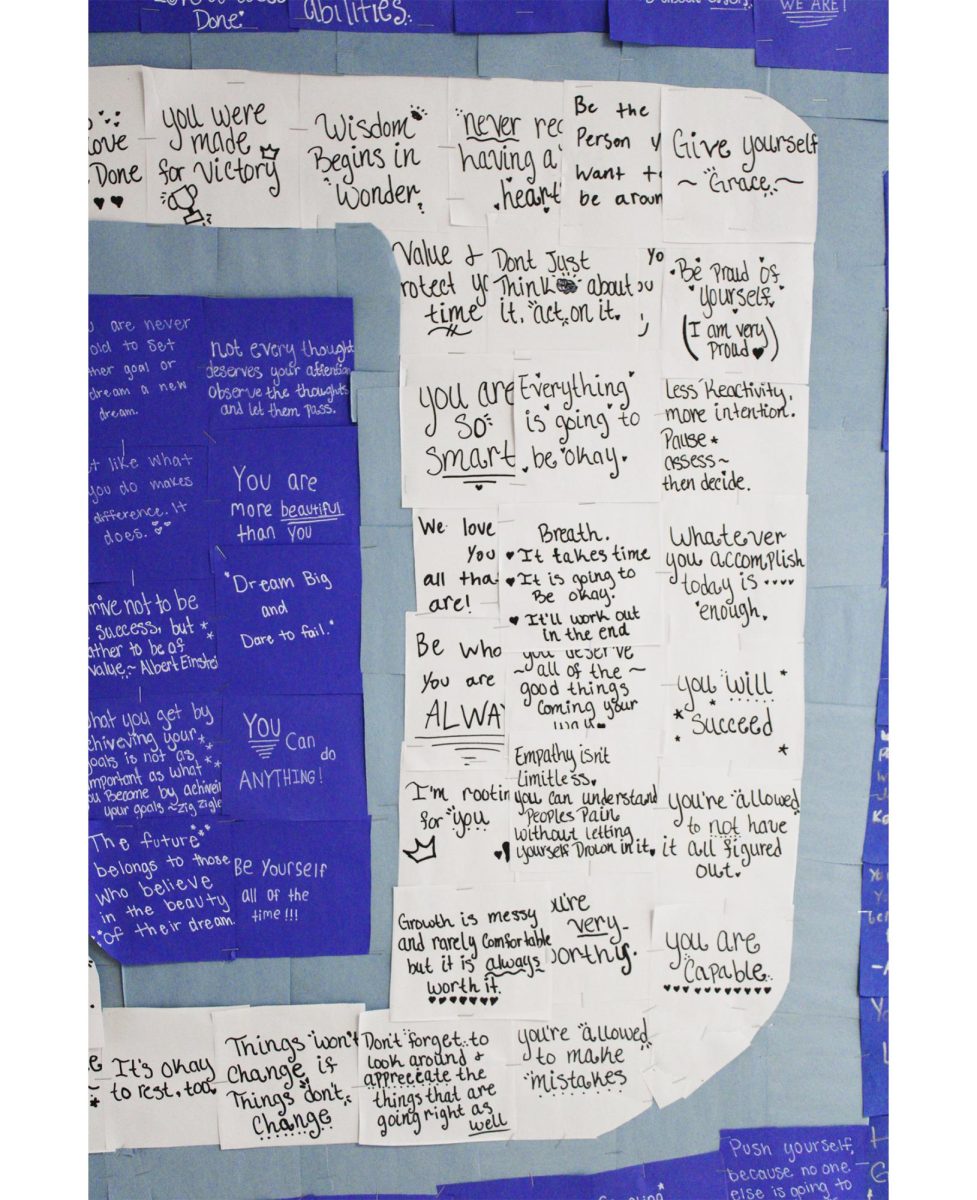 Done
abilities.
WE ARE!
ove
Done
you were
made
for Victory
Wisdom
Begins in
Wonder
never
having a
heart
Be the
Person
want
be
Give yourself
~Grace~
Value &
time
Dont Just
Think about
it, act on it.
Be Proud of
yourself.
(I am very
Proud)
are never
old to set
goal or
dream a new
dream.
not every thought
deserves your attention
observe the thoughts
and let them pass.
you are
so
smart
Everything
is going to
be okay.
Less Reactivity,
more intention.
Pause
assess~
then decide.
like what
you do makes
difference. It
does.
You are
more beautiful
than you
We love
You
all
are!
Breath.
It takes time
It is going to
Be okay.
It'll work out
in the end
Whatever
you accomplish
today is ....
enough.
not to be
success, but
to be of
value.~ Albert
"Dream Big
and
Dare to fail."
Be who
You are
you deserve
~all of the~
good things
coming your
way
you will
Succeed
what you get by
your
goals is not as
important as what
Become by
your goals ~zig
YOU
Can
do
ANYTHING!
I'm
for you
Empathy isn't
Limitless.
you can understand
Peoples Pain
without letting
yourself Drown in it.
you're allowed
to not have
it all figured
out.
The future
belongs to those
who believe
in the beauty
of their dream
Be Yourself
all of the
time!!!
Growth is messy
and rarely comfortable
but it is always
worth it.
very
you are
Capable
It's okay
to rest, too
Things won't
Change, if
Things don't
Change
Don't forget to
look around &
appreceate the
things that are
going right as
well
you're allowed
to make
mistakes
Push yourself,
because no one
else is going to